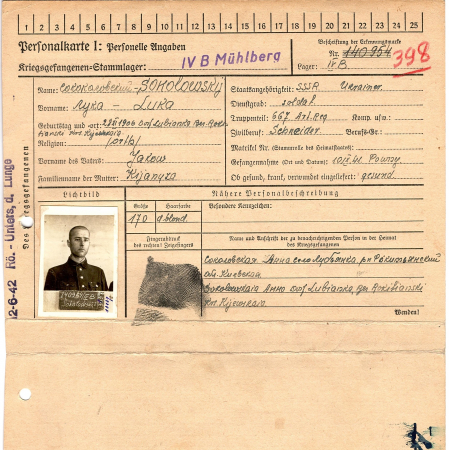 1 2 3 4 5 6 7 8 9 10 11 12 13 14 15 16 17 18 19 20 21 22 23 24 25
Personalkarte I: Personelle Angaben
Kriegsgefangenen-Stammlager: IV B Mühlberg
Beschriftung der Erkennungsmarke
Nr. 140954
Lager: IV B.
398
Name: Соколовский - SOKOLOWSKIJ
Vorname: Лука - LUKA
Geburtstag und -ort: 1906 Lubianka
Religion: orth.
Vorname des Vaters: Jakow
Familienname der Mutter: Kijanyza
Staatsangehörigkeit: SSSR Ukrainer
Dienstgrad: soldat
Truppenteil: 667 Art. Reg Komp. usw.:
Zivilberuf: Schneider Berufs-Gr.:
Matrikel Nr. (Stammrolle des Heimatstaates):
Gefangennahme (Ort und Datum):
Ob gesund, krank, verwundet eingeliefert: gesund
Lichtbild
Nähere Personalbeschreibung
Größe Haarfarbe
170 d. blond.
Besondere Kennzeichen:
Fingerabdruck
des rechten Zeigefingers
Name und Anschrift der zu benachrichtigenden Person in der Heimat
des Kriegsgefangenen
Соколовская Анна село Лубянка
Киевская
Sokolowskaia Lubianka
Wenden!
Des Kriegsgefangenen
12-6-42 Rö.-Unters. d. Lunge